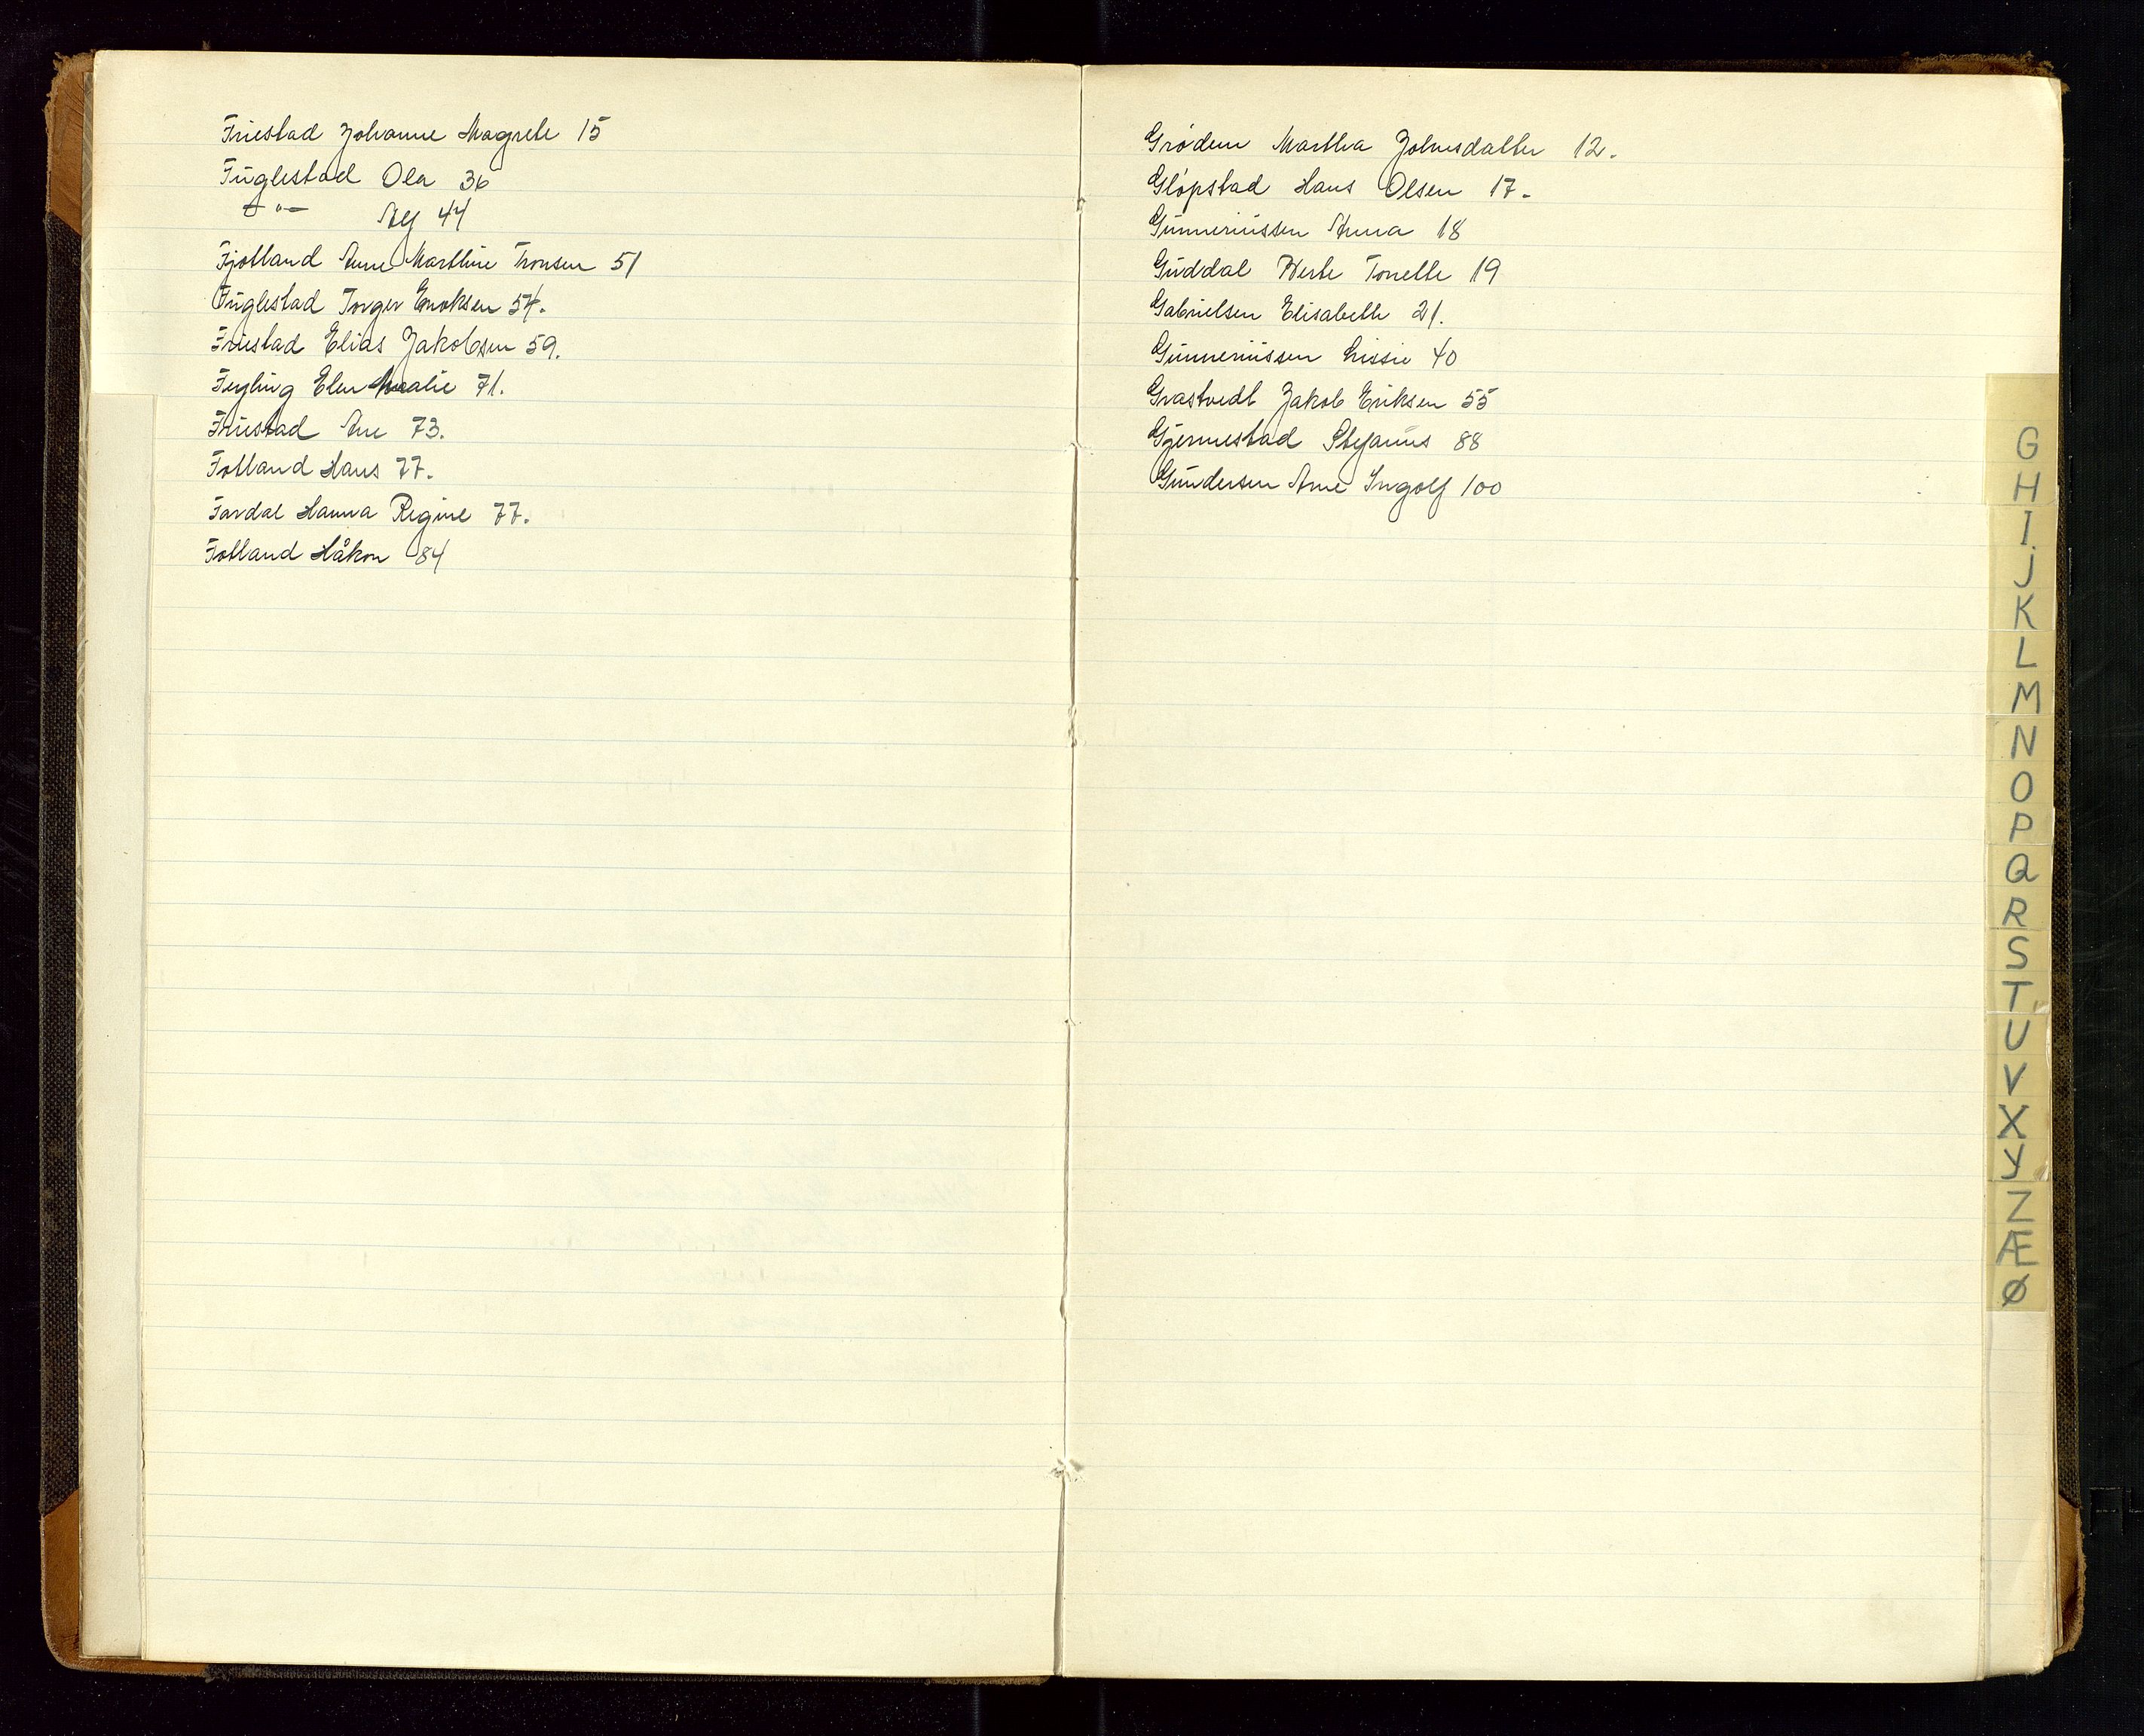 Friestad Johanne Magrete 15
Fuglestad Ola 36
— " — Alf 44
Fjotland Anne Marthine Tronsen 51
Fuglestad Torger Enoksen 54.
Friestad Elias Jakobsen 59.
Feyling Elen Malie 71.
Friestad Ane 73.
Fotland Hans 77.
Fardal Hanna Regine 77.
Fotland Håkon 84
Grødem Martha Johnsdatter 12.
Gløpstad Hans Olsen 17.
Gunneriussen Anna 18
Guddal Tonette 19
Gabrielsen Elisabeth 21.
Gunneriussen Lissie 40
Grastvedt Jakob Eriksen 55
Gjermestad Stefanus 88
Gundersen Arne Ingolf 100
G
H
I
J
K
L
M
N
O
P
Q
R
S
T
U
V
X
Y
Z
Æ
Ø